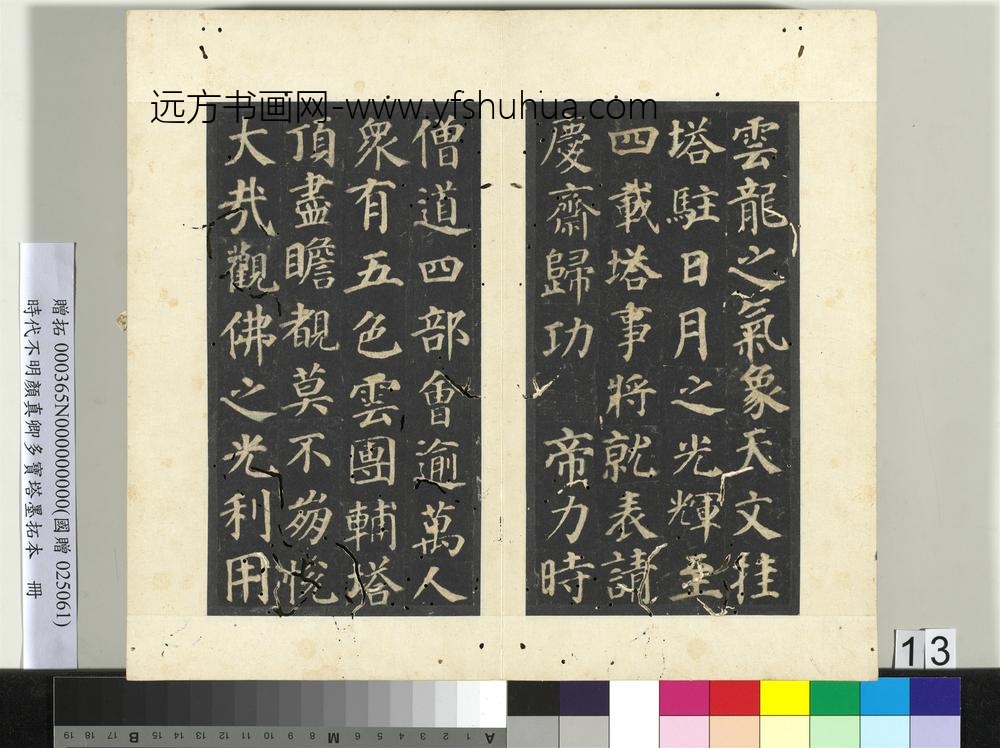 远方书画网-www.yfshuhua.com
雲龍之氣象天文挂
塔駐日月之光輝至
四載塔事將就表請
慶齋歸功 帝力時
僧道四部會逾萬人
衆有五色雲團輔塔
頂盡瞻覩莫不崩悅
大哉觀佛之光利用
贈拓 000365N000000000(國贈 025061)
時代不明顏真卿多寶塔墨拓本 冊
13
A 1 2 3 4 5 6 M 8 9 10 11 12 13 14 15 B 17 18 19